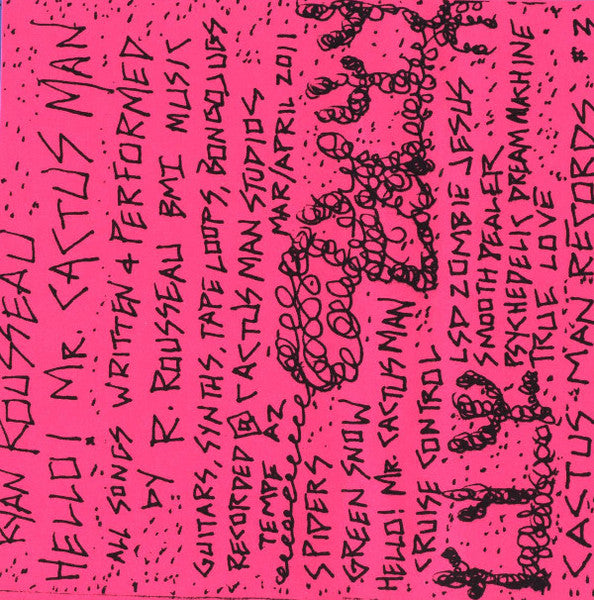 RYAN ROUSSEAU
HELLO! MR. CACTUS MAN
ALL SONGS WRITTEN & PERFORMED
BY R. ROUSSEAU BMI MUSIC
GUITARS, SYNTHS, TAPE LOOPS, BONGOJUGS
RECORDED @ CACTUS MAN STUDIOS
TEMPE AZ MAR/APRIL 2011
SPIDERS
GREEN SNOW
HELLO! MR. CACTUS MAN
CRUISE CONTROL
LSD ZOMBIE JESUS
SMOOTH DEALER
PSYCHEDELIC DREAM MACHINE
TRUE LOVE
CACTUS MAN RECORDS #3